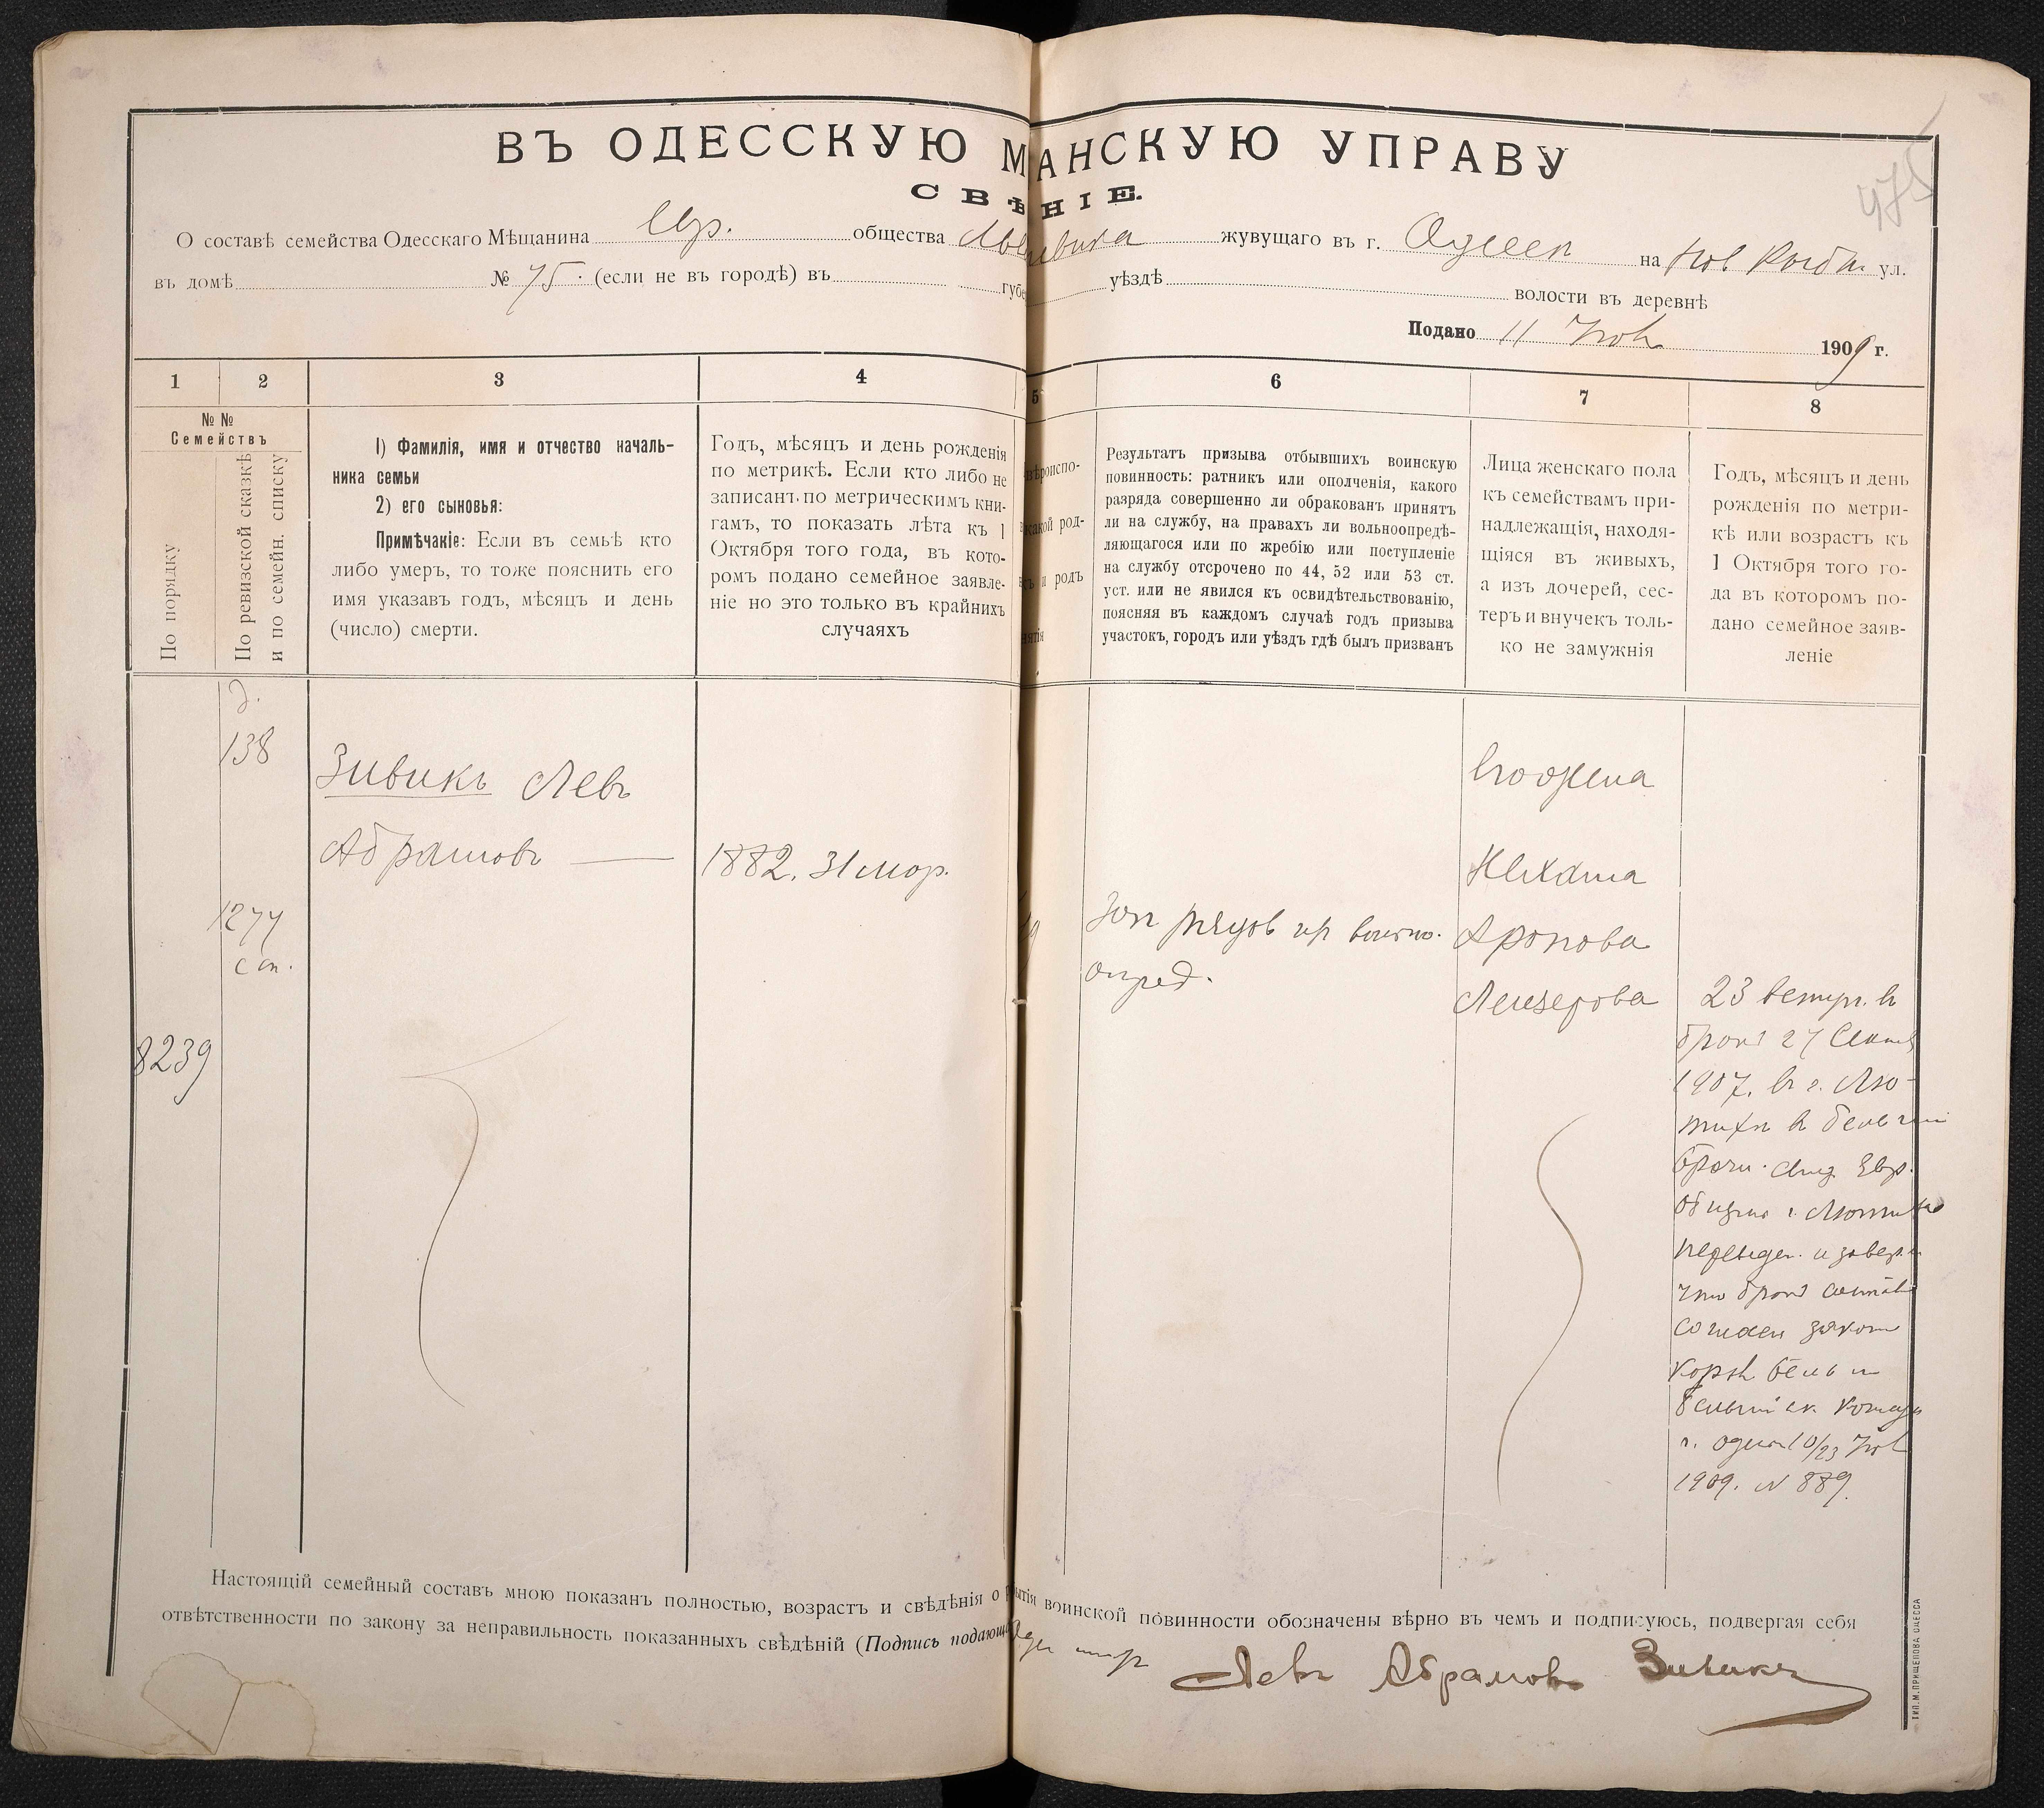 ВЪ ОДЕССКУЮ М АНСКУЮ УПРАВУ
СВѢ НІЕ.
475
О составѣ семейства Одесскаго Мѣщанина Евр. общества жувущаго въ г. Одессѣ на ул.
въ домѣ № 75. (если не въ городѣ) въ губе уѣздѣ волости въ деревнѣ
Подано 11 Нов 1909 г.
1 2 3 4 5 6 7 8
№ №
Семействъ
По порядку
По ревизской сказкѣ
и по семейн. списку
1) Фамилія, имя и отчество началь-
ника семьи
2) его сыновья:
Примѣчакіе: Если въ семьѣ кто
либо умеръ, то тоже пояснить его
имя указавъ годъ, мѣсяцъ и день
(число) смерти.
Годъ, мѣсяцъ и день рожденія
по метрикѣ. Если кто либо не
записанъ по метрическимъ кни-
гамъ, то показать лѣта къ 1
Октября того года, въ кото-
ромъ подано семейное заявле-
ніе но это только въ крайнихъ
случаяхъ
вѣроиспо-
какой род-
и родъ
нятія
Результатъ призыва отбывшихъ воинскую
повинность: ратникъ или ополченія, какого
разряда совершенно ли обракованъ принятъ
ли на службу, на правахъ ли вольноопредѣ-
ляющагося или по жребію или поступленіе
на службу отсрочено по 44, 52 или 53 ст.
уст. или не явился къ освидѣтельствованію,
поясняя въ каждомъ случаѣ годъ призыва
участокъ, городъ или уѣздъ гдѣ былъ призванъ
Лица женскаго пола
къ семействамъ при-
надлежащія, находя-
щіяся въ живыхъ,
а изъ дочерей, сес-
теръ и внучекъ толь-
ко не замужнія
Годъ, мѣсяцъ и день
рожденія по метри-
кѣ или возрастъ къ
1 Октября того го-
да въ которомъ по-
дано семейное заяв-
леніе
д.
138
Зивикъ Левъ
Абрамовъ
1882, 31 мар.
1277
сп.
8239
Зап. рядов
опред.
его жена
Нехама
Аронова
Лейзерова
23 вступ. в
бракъ 27 Сент
1907. в г. Лю-
тихѣ в Бельгіи
Евр.
г.
что бракъ
г. 10/23 Нов
1909. N 889.
Настоящій семейный составъ мною показанъ полностью, возрастъ и свѣдѣнія о бытія воинской повинности обозначены вѣрно въ чемъ и подписуюсь, подвергая себя
отвѣтственности по закону за неправильность показанныхъ свѣдѣній (Подпись подающа
Левъ Абрамовъ Зивикъ
ТИП. М. ПРИЩЕПОВА ОДЕССА